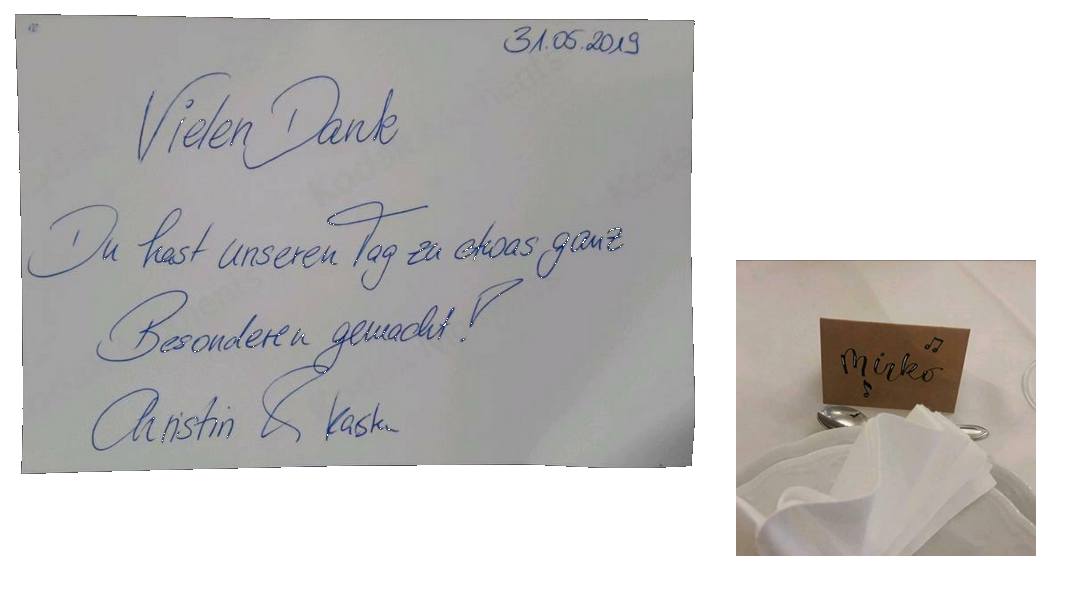 31.05.2019
Vielen Dank
Du hast unseren Tag zu etwas ganz
Besonderen gemacht!
Christin &
Mirko